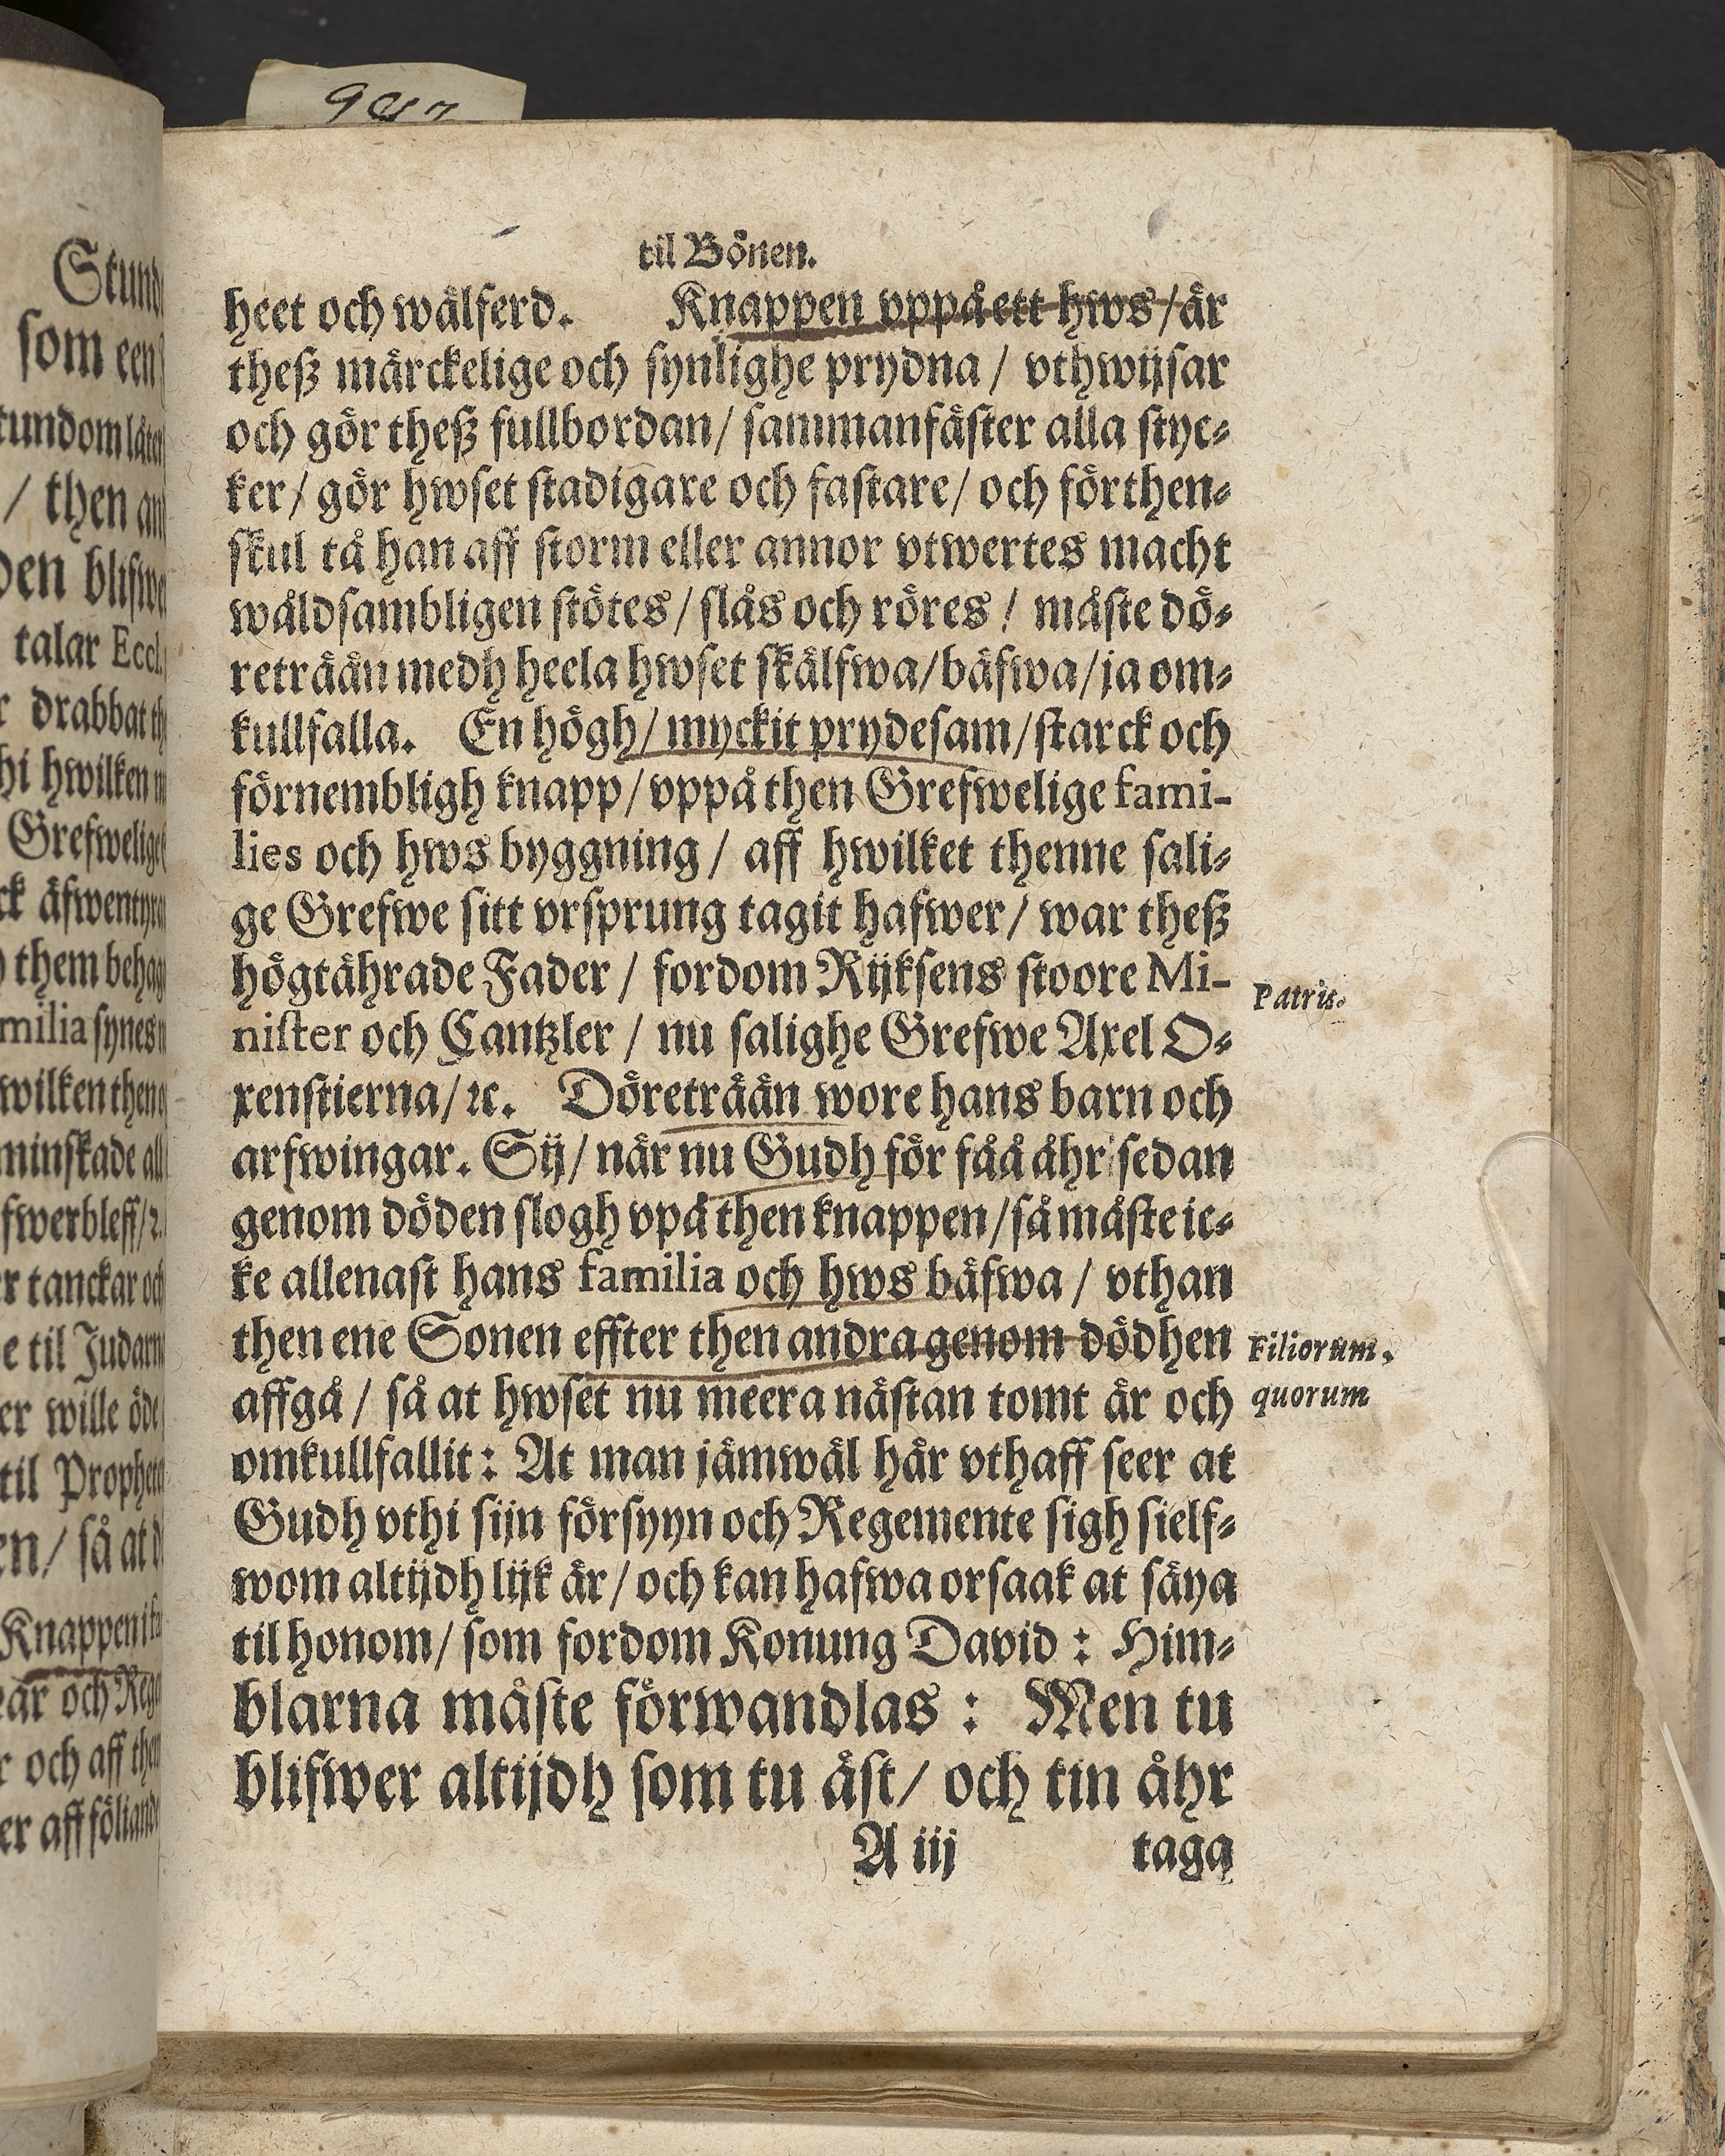 til Bönen.
heet och wälferd. Knappen vppå ett hws / är
theß märckelige och synlighe prydna / vthwijsar
och gör theß fullbordan / sammanfäster alla styc-
ker / gör hwset stadigare och fastare / och förthen-
skul tå han aff storm eller annor vtwertes macht
wåldsambligen stötes / slås och röres / måste dö-
reträän medh heela hwset skälfwa / bäfwa / ja om-
kullfalla. En högh / myckit prydesam / starck och
förnembligh knapp / vppå then Grefwelige fami-
lies och hws byggning / aff hwilket thenne sali-
ge Grefwe sitt vrsprung tagit hafwer / war theß
högtährade Fader / fordom Rijksens stoore Mi-
Patris.
nister och Cantzler / nu salighe Grefwe Axel O-
xenstierna / ꝛc. Döreträän wore hans barn och
arfwingar. Sij / när nu Gudh för fåå åhr sedan
genom döden slogh vpå then knappen / så måste ic-
ke allenast hans familia och hws bäfwa / vthan
then ene Sonen effter then andra genom dödhen
Filiorum.
affgå / så at hwset nu meera nästan tomt är och
quorum
omkullfallit : At man jämwäl här vthaff seer at
Gudh vthi sijn försyyn och Regemente sigh sielf-
wom altijdh lijk är / och kan hafwa orsaak at säya
til honom / som fordom Konung David : Him-
blarna måste förwandlas : Men tu
blifwer altijdh som tu äst / och tin åhr
A iij taga
Stund
som een
tundom låter
/ then an
den blifwe
talar Eccl.
r drabbat th
hi hwilken
Grefwelige
ck äfwentyra
them behag
milia synes
wilken then
minskade all
fwerbleff /
r tanckar och
e til Judarn
er wille öde
til Prophet
en / så at
Knappen
ar och Rege
r och aff then
er aff föliande